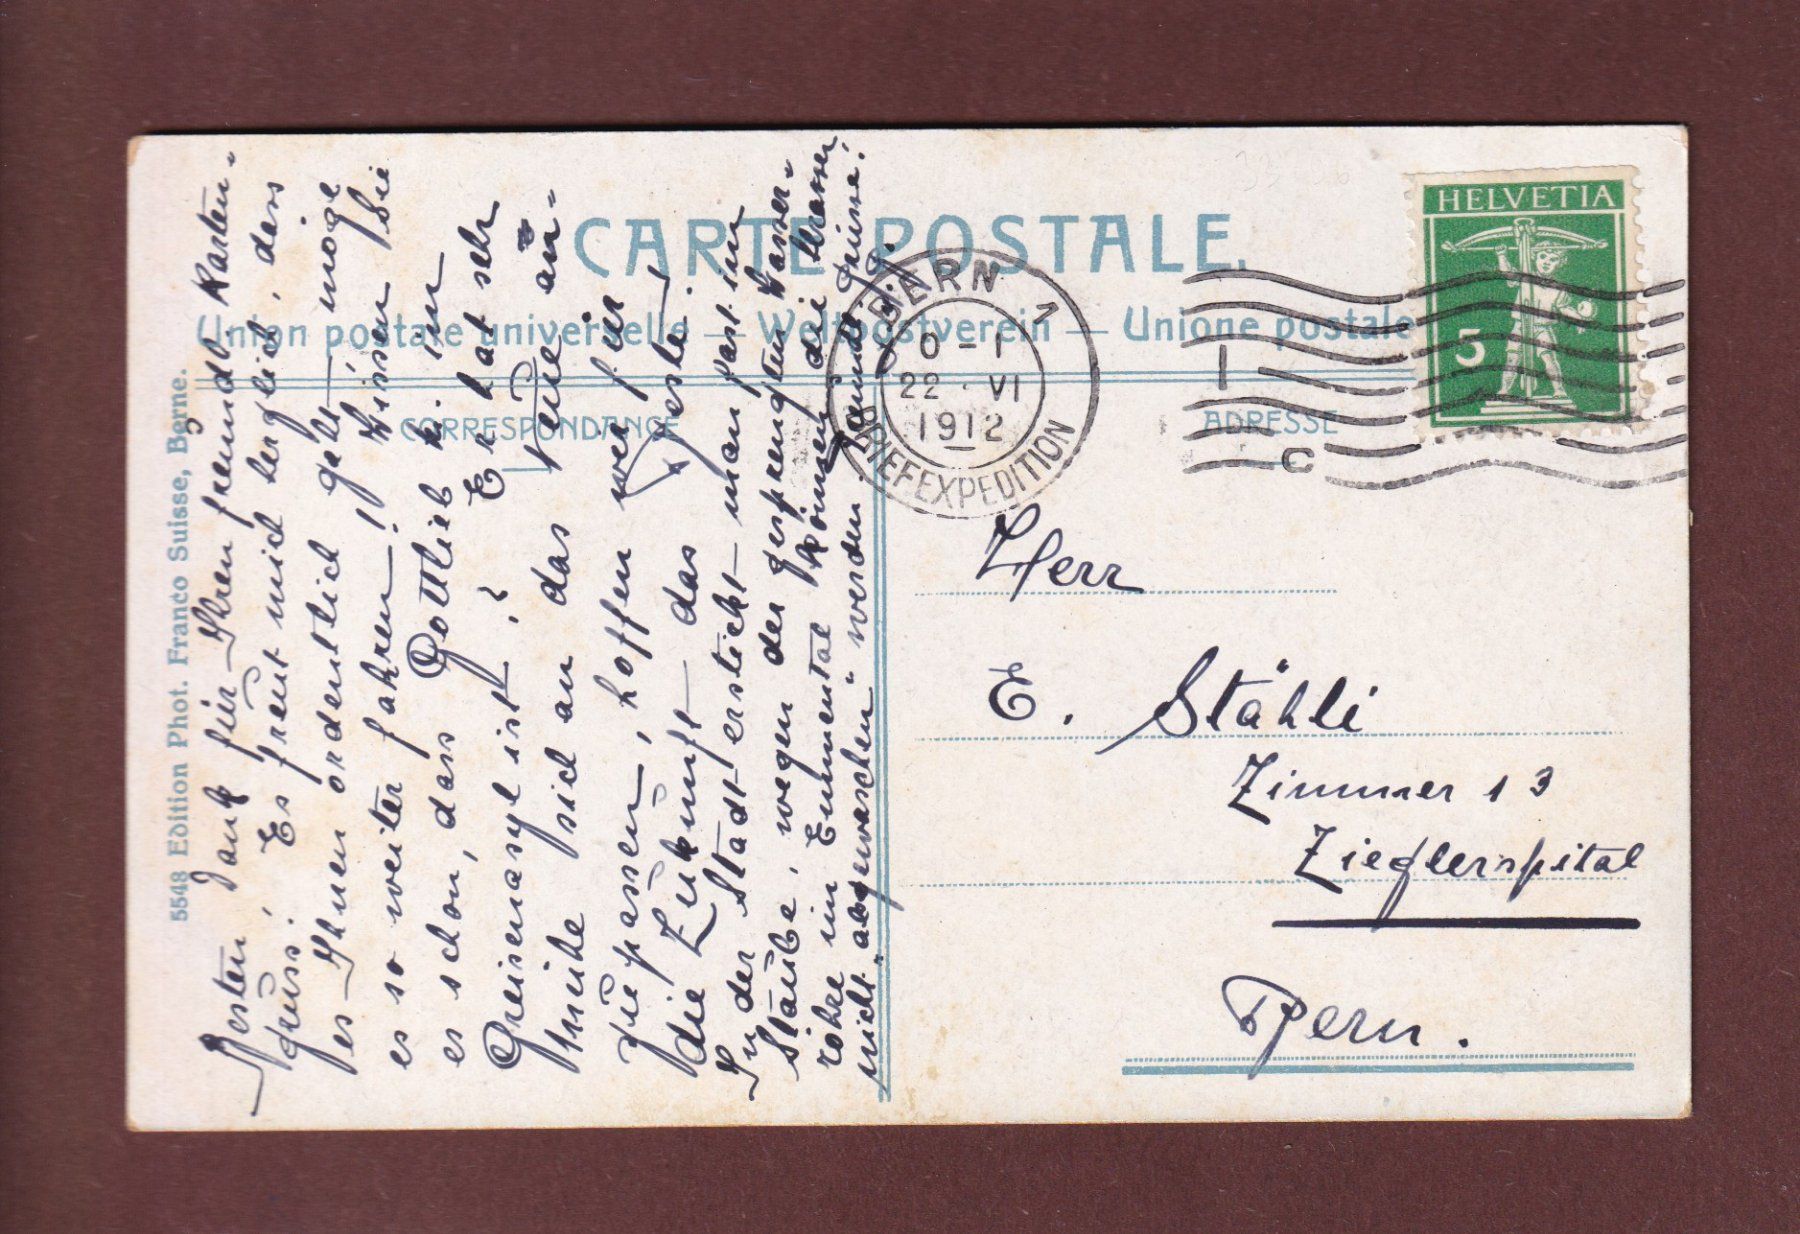 CARTE POSTALE.
Union postale universelle — Weltpostverein — Unione postale
CORRESPONDANCE
ADRESSE
5548 Edition Phot. Franco Suisse, Berne.
HELVETIA
5
BERN 1
22. VI
1912
BRIEFEXPEDITION
C
Besten Dank für Ihren freundl. Karten-
gruss! Es freut mich herzlich, dass
es Ihnen ordentlich geht, möge
es so weiter fahren! Wissen Sie
es schon, dass Gottlieb K. im
Greisenasyl ist? Er hat sehr
Mühe sich an das Neue an-
zupassen, hoffen wir für
die Zukunft das Beste!
In der Stadt erstickt man fast im
Staube, wegen der gesprengten Wasser-
röhre im Emmental können die Strassen
nicht "abgewaschen" werden.
Herr
E. Stähli
Zimmer 13
Zieglerspital
Bern.